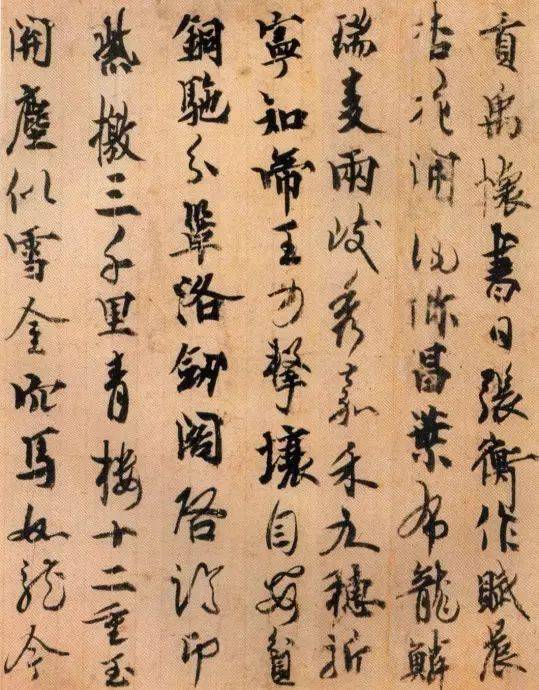 貢禹懷書日張衡作賦晨
杏花開昌葉布龍鱗
瑞麥兩歧秀嘉禾九穗新
寧知帝王力擊壤自安貧
銅馳分鞏洛劍閣臨卭
紫檄三千里青樓十二重玉
關塵似雪金穴馬如龍今